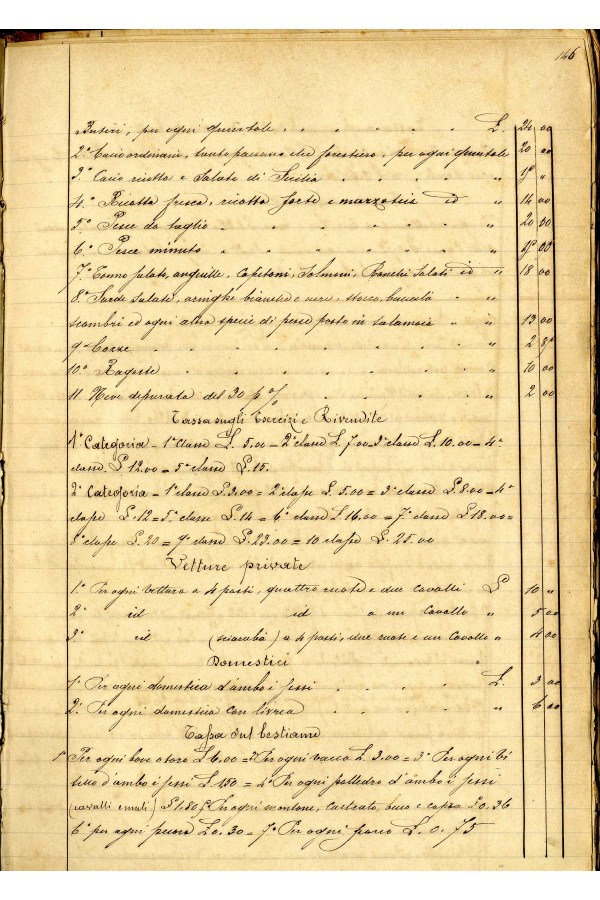 146
Butiri, per ogni quintale . . . . . . £. 24 00
2º Cacio ordinario, tanto paesano che forestiero, per ogni quintale 20 00
3º Cacio ricotta e Salato di Sicilia . . . . . "
4º Ricotta fresca, ricotta forte e id " 14 00
5º Pesce da taglio . . . . . . " 20 00
6º Pesce minuto . . . . . . "
7º Tonno salato, anguille, Capitoni, Salmoni, Salati id " 18 00
8º Sarde Salate, aringhe bianche e nere, stocco, baccalà "
scombri ed ogni altra specie di pesce posto in salamoia " " 13 00
9º Cozze . . . . . . . 2
10º Ragoste . . . . . . . 10 00
11 Neve depurata del 30 p % . . . . 2 00
Tassa sugli Esercizi e Rivendite
1ª Categoria - 1ª Classe £. 5.00 - 2ª classe £. 7.00 - 3ª classe £. 10.00 - 4ª
classe £ 12.00 - 5ª classe £. 15.
2ª Categoria - 1ª classe £ 3.00 = 2ª classe £. 5.00 = 3ª classe £. 8.00 - 4ª
classe £. 12 = 5ª classe £. 14 = 6ª classe £ 16.00 = 7ª classe £ 18.00 =
8ª classe £. 20 = 9ª classe £. 22.00 = 10 classe £. 25.00
Vetture private
1º Per ogni vettura a 4 posti, quattro ruote e due cavalli £ 10 "
2º id id a un Cavallo " 5 00
3º id (sciarabà) a 4 posti, due ruote e un Cavallo " 4 00
Domestici
1º Per ogni domestico d'ambo i sessi . . . . £. 3 00
2º Per ogni domestico con livrea . . . . " 6 00
Tassa sul bestiame
1º Per ogni bove o toro £ 6.00 = 2º Per ogni vacca £. 3.00 = 3º Per ogni vi
tello d'ambo i sessi £. 1.50 = 4º Per ogni polledro d'ambo i sessi
(cavalli e muli) £ 1.80 5º Per ogni montone, castrato, becco e capra £ 0.36
6º per ogni pecora £ 0.30 = 7º Per ogni porco £. 0.75